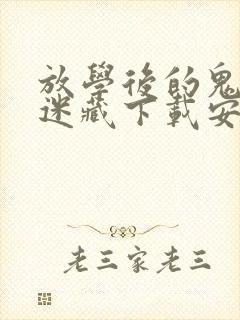 放學後的鬼
迷藏下載安
老三家老三